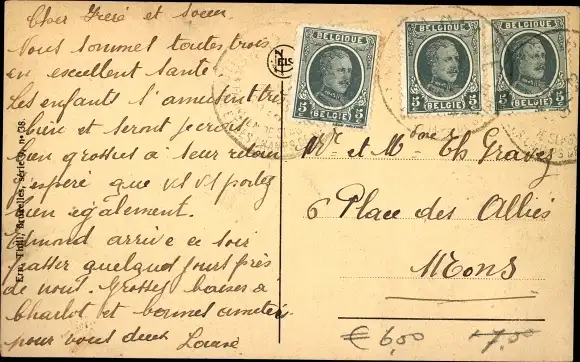 Cher Frère et soeur
Nous sommes toutes trois
en excellent santé.
Les enfants s'amusent très
bien et seront je crois
bien grosses à leur retour
J'espère que vs vs portez
bien également.
Edmond arrive ce soir
passer quelques jours près
de nous. Grosses baises à
Charlot et bonnes amitiés
pour vous deux
Ern. Thill, Bruxelles, série 9, n° 38.
BELGIQUE
5 5
BELGIË
BELGIQUE
5 5
BELGIË
BELGIQUE
5 5
BELGIË
Mr et Me Th Gravez
6 Place des Alliés
Mons
€ 6,00 7,50